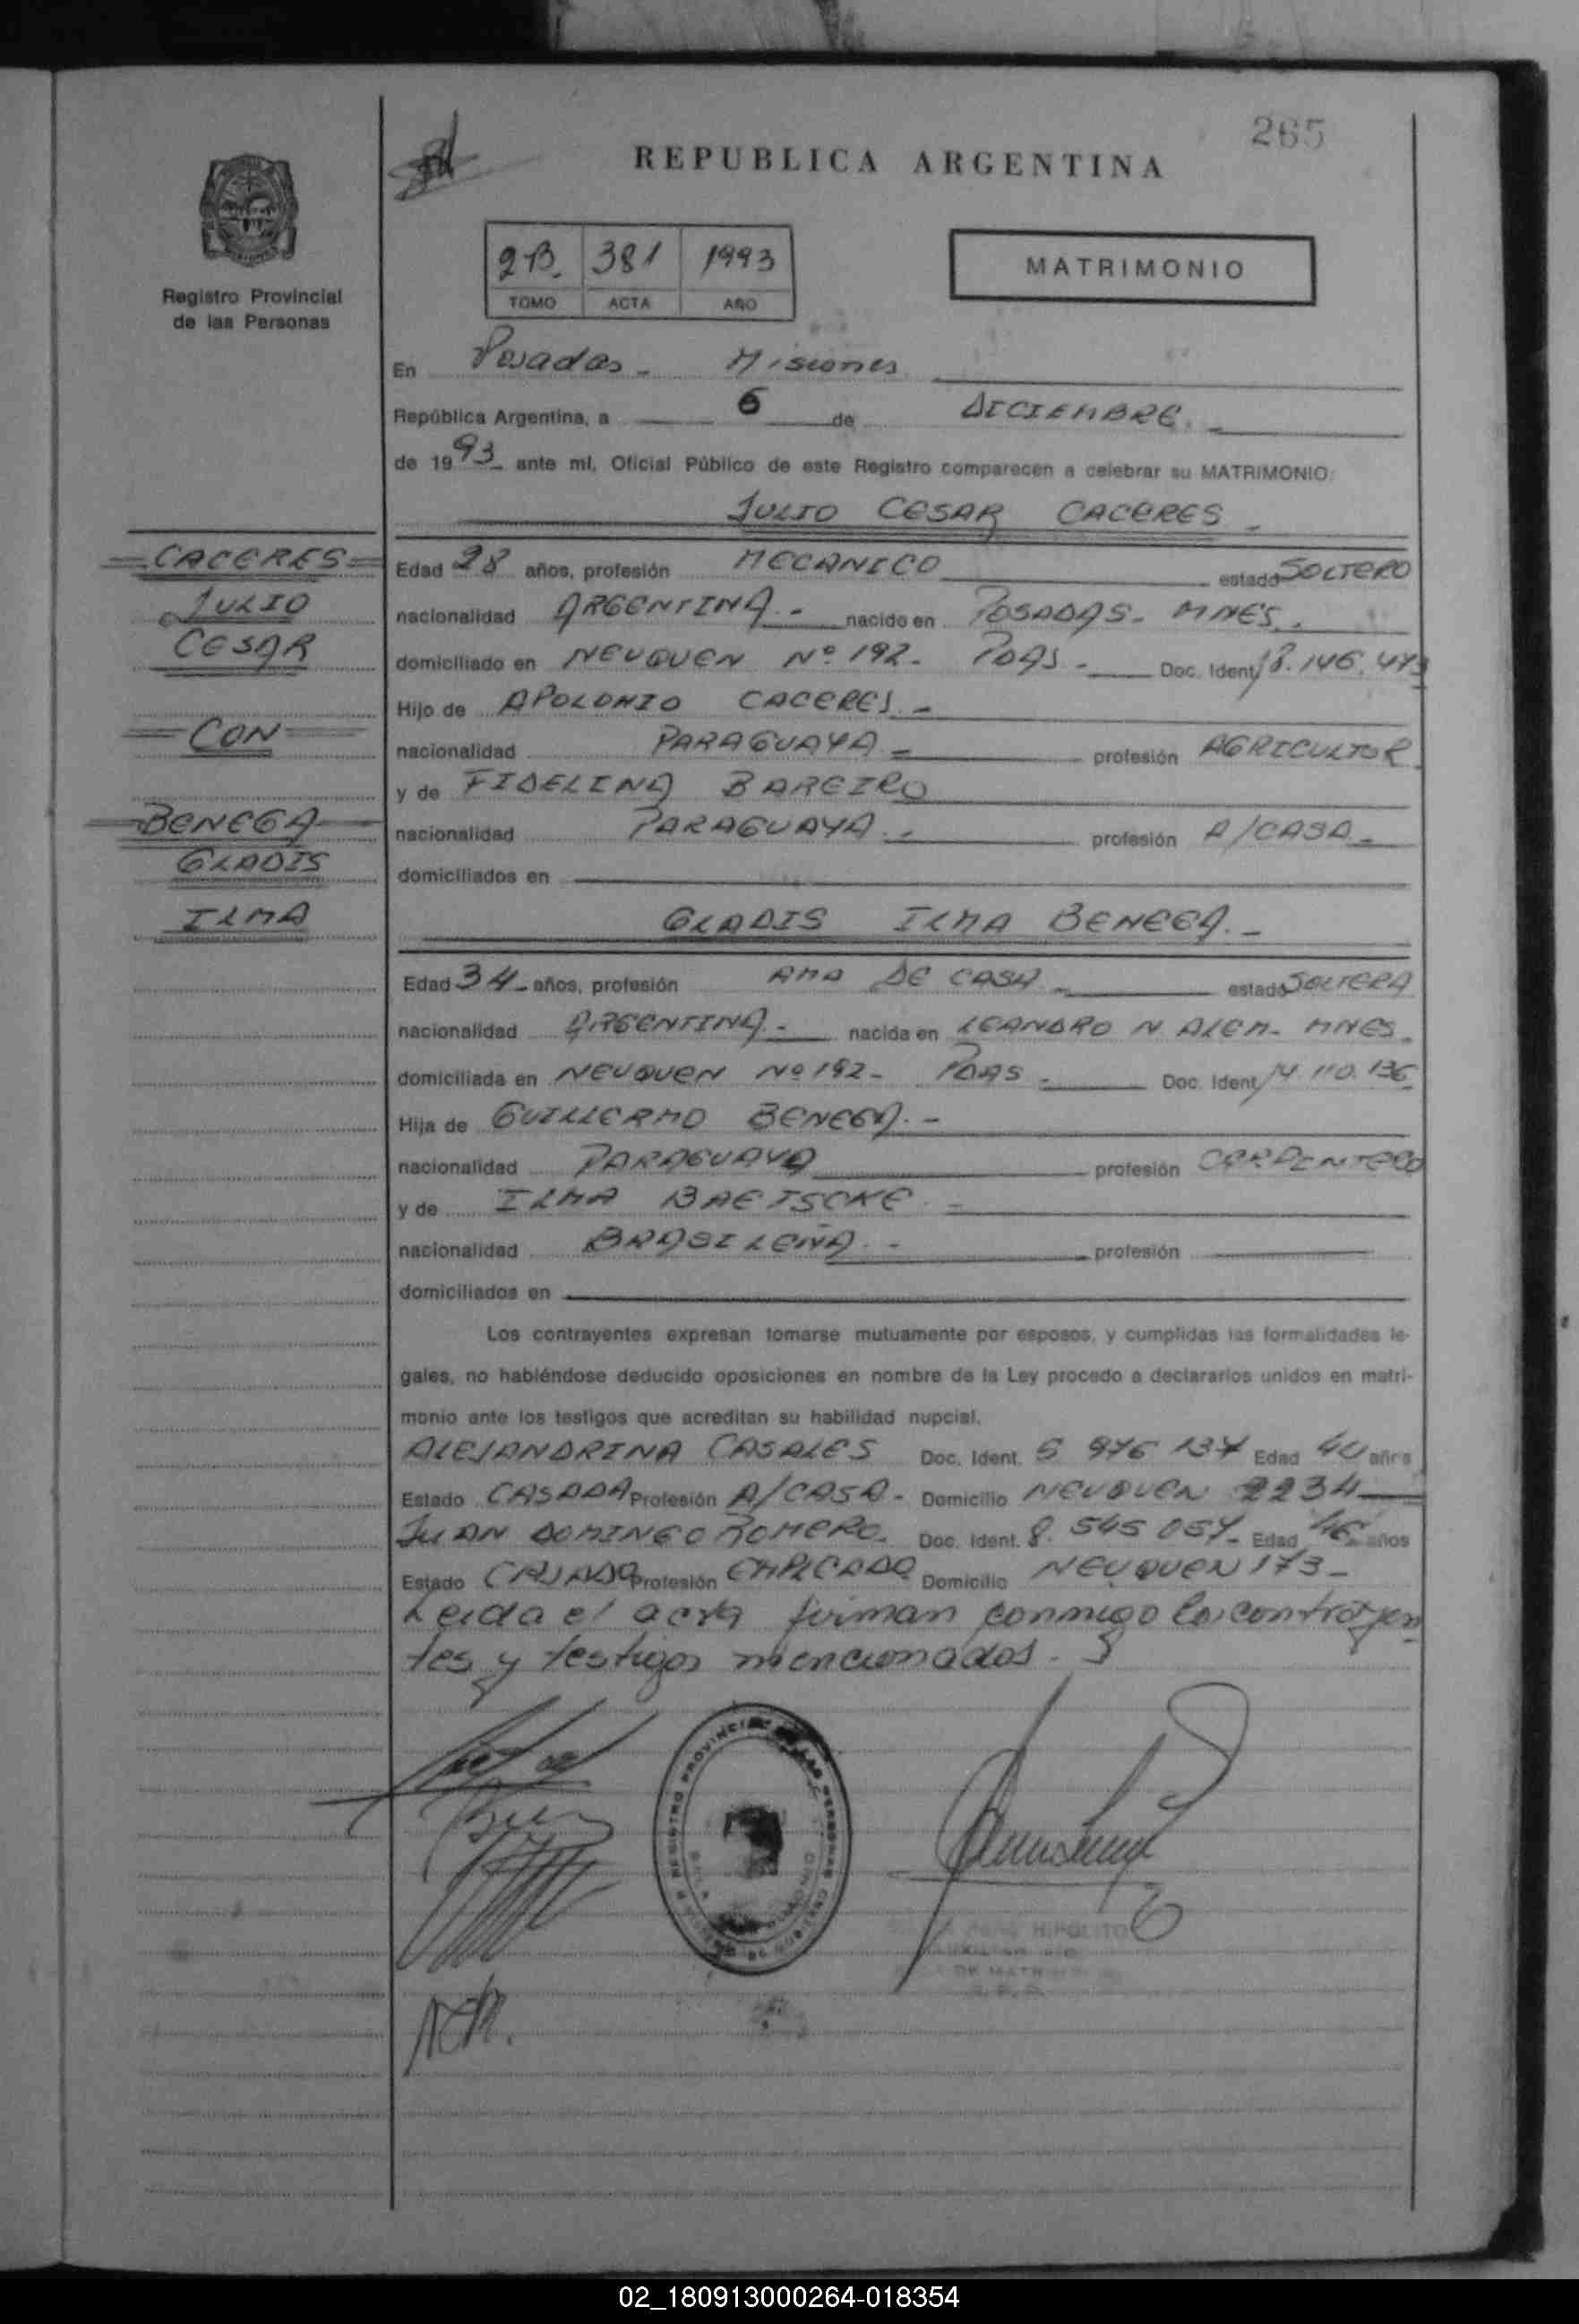 265
REPUBLICA ARGENTINA
2B. 381 1993
TOMO ACTA AÑO
MATRIMONIO
Registro Provincial
de las Personas
En Posadas - Misiones
República Argentina, a 6 de DICIEMBRE. -
de 1993 ante mí, Oficial Público de este Registro comparecen a celebrar su MATRIMONIO:
JULIO CESAR CACERES -
CACERES
JULIO
CESAR
CON
BENEGA
GLADIS
ILMA
Edad 28 años, profesión MECANICO estado SOLTERO
nacionalidad ARGENTINA. - nacido en POSADAS - MNES.
domiciliado en NEUQUEN Nº 192 - PDAS - Doc. Ident. 18.146.473
Hijo de APOLONIO CACERES. -
nacionalidad PARAGUAYA - profesión AGRICULTOR.
y de FIDELINA BAREIRO
nacionalidad PARAGUAYA. - profesión A/CASA -
domiciliados en
GLADIS ILMA BENEGA. -
Edad 34 - años, profesión AMA DE CASA - estado SOLTERA
nacionalidad ARGENTINA. - nacida en LEANDRO N ALEM - MNES.
domiciliada en NEUQUEN Nº 192 - PDAS - Doc. Ident. 14.110.136
Hija de GUILLERMO BENEGA. -
nacionalidad PARAGUAYA profesión CARPINTERO
y de ILMA BAETSCKE. -
nacionalidad BRASILEÑA. - profesión
domiciliados en
Los contrayentes expresan tomarse mutuamente por esposos, y cumplidas las formalidades le-
gales, no habiéndose deducido oposiciones en nombre de la Ley procedo a declararlos unidos en matri-
monio ante los testigos que acreditan su habilidad nupcial.
ALEJANDRINA CASALES Doc. Ident. 5 976 137 Edad 40 años
Estado CASADA Profesión A/CASA - Domicilio NEUQUEN 2234
JUAN DOMINGO ROMERO. Doc. Ident. 8.545 057 - Edad 46 años
Estado CASADO Profesión EMPLEADO Domicilio NEUQUEN 173 -
Leida el acta firman conmigo los contrayen
tes y testigos mencionados -
REGISTRO PROVINCIAL DE LAS PERSONAS
HIPOLITO
02_180913000264-018354